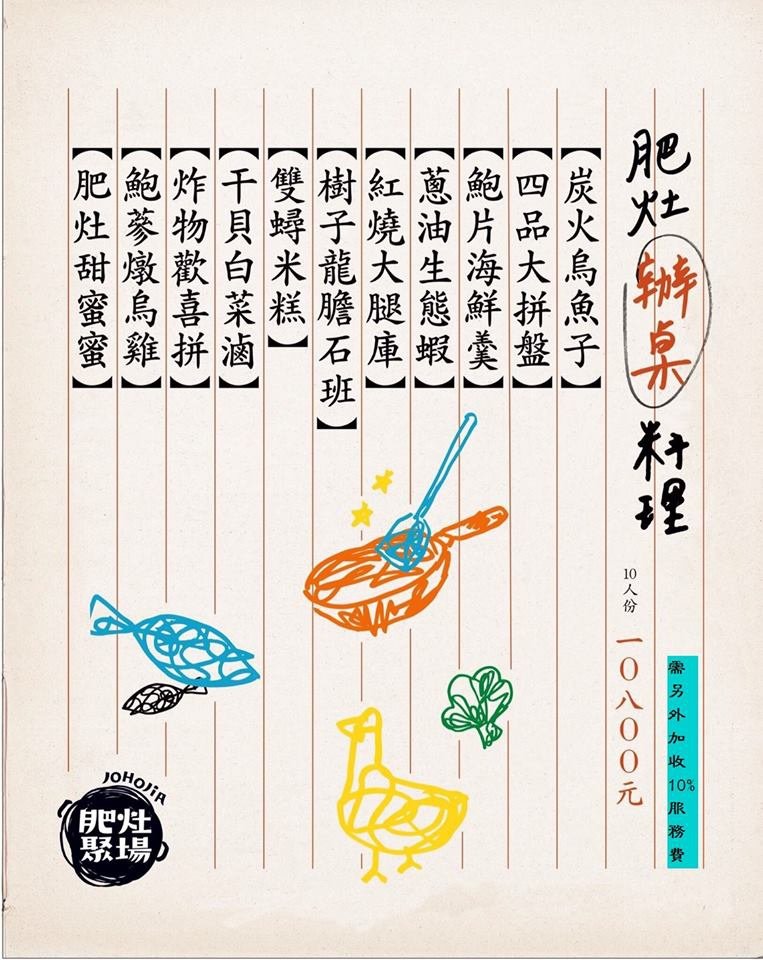 肥灶辦桌料理
10人份
一〇八〇〇元
需另外加收10%服務費
【炭火烏魚子】
【四品大拼盤】
【鮑片海鮮羹】
【蔥油生態蝦】
【紅燒大腿庫】
【樹子龍膽石班】
【雙蟳米糕】
【干貝白菜滷】
【炸物歡喜拼】
【鮑蔘燉烏雞】
【肥灶甜蜜蜜】
JOHOJIA
肥灶
聚場